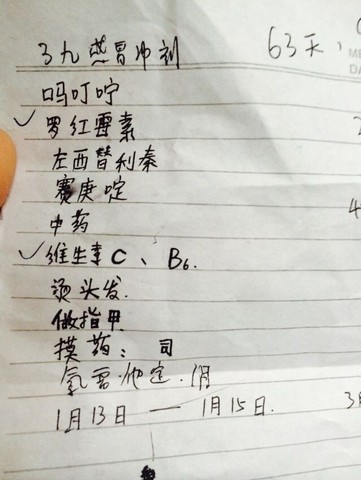 三九感冒冲刻
63天、
吗叮咛
✓罗红霉素
左西替利秦
赛庚啶
中药
✓维生素C、B6.
烫头发.
做指甲
摸药：司
氯雷他定.阴
1月13日 — 1月15日.